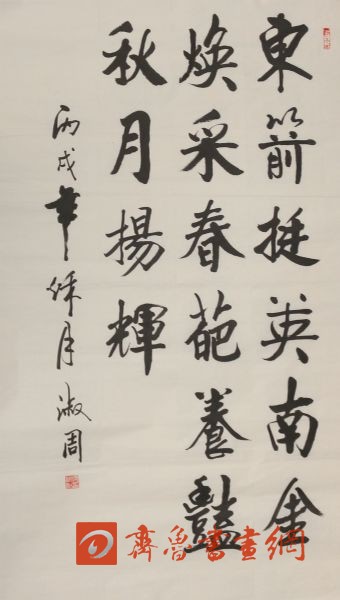 東箭挺英南金
煥采春葩養豔
秋月揚輝
丙戌年秋月淑周
齊魯書畫網